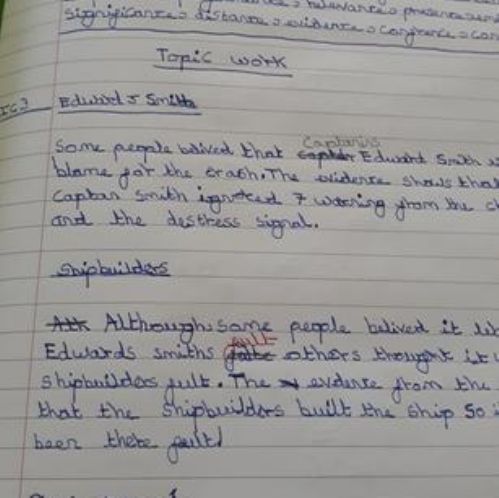 relevance, presence
significance, distance, evidence, confidence, con
Topic work
Edward J Smith
Captains
Some people belived that Edward Smith w
blame for the crash. The evidence shows that
Captan Smith ignored 7 warning from the c
and the destress signal.
Shipbuilders
Although some people belived it
fult
Edwards smiths others thought it
shipbuilders fult. The evidence from the
that the shipbuilders built the ship so i
been there fault